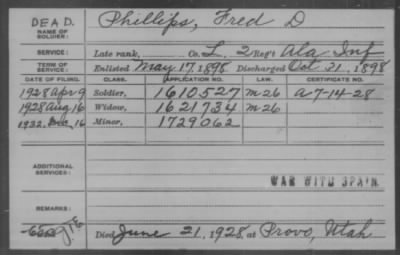 DEAD.
NAME OF SOLDIER: Phillips, Fred D
SERVICE: Late rank, Co. L, 2 Reg't Ala Inf
TERM OF SERVICE: Enlisted May 17, 1898 Discharged Oct 31, 1898
DATE OF FILING. CLASS. APPLICATION NO. LAW. CERTIFICATE NO.
1928 Apr 9 Soldier, 1610527 M26 A 7-14-28
1928 Aug 16 Widow, 1621734 M26
1932, Dec, 16 Minor, 1729062
ADDITIONAL SERVICES:
WAR WITH SPAIN
REMARKS:
Died June 21, 1928, at Provo, Utah